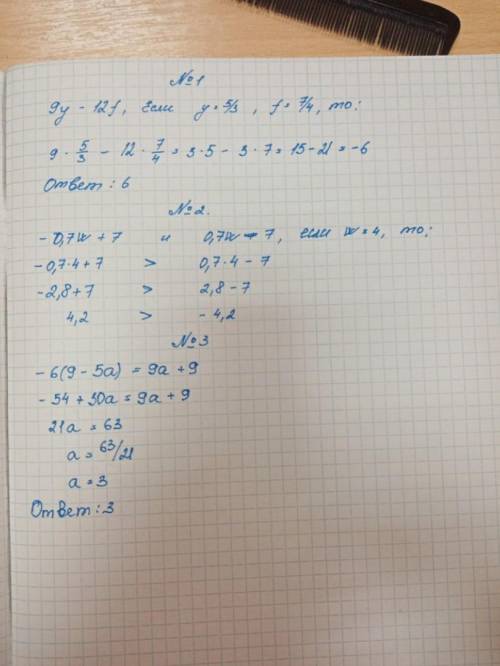 №1
9y - 12f, если y = 5/3, f = 7/4, то:
9 · 5/3 - 12 · 7/4 = 3 · 5 - 3 · 7 = 15 - 21 = -6
Ответ: 6
№2.
- 0,7x + 7 и 0,7x - 7, если x = 4, то:
-0,7·4 + 7 > 0,7·4 - 7
-2,8 + 7 > 2,8 - 7
4,2 > - 4,2
№3
- 6(9 - 5a) = 9a + 9
- 54 + 30a = 9a + 9
21a = 63
a = 63/21
a = 3
Ответ: 3